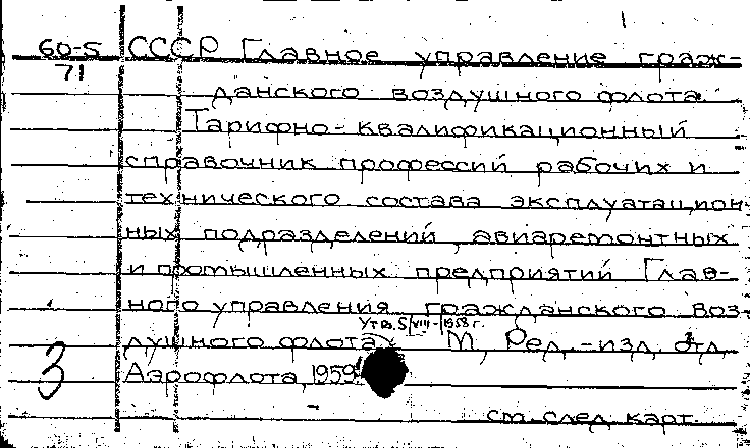 60-5 СССР Главное управление граж-
71
данского воздушного флота.
Тарифно-квалификационный
справочник профессий рабочих и
технического состава эксплуатацион-
ных подразделений, авиаремонтных
и промышленных предприятий Глав-
ного управления гражданского воз-
Утв. 5/VIII-1958 г.
душного флота. М., Ред.-изд. отд.
Аэрофлота, 1959
3
см. след. карт.